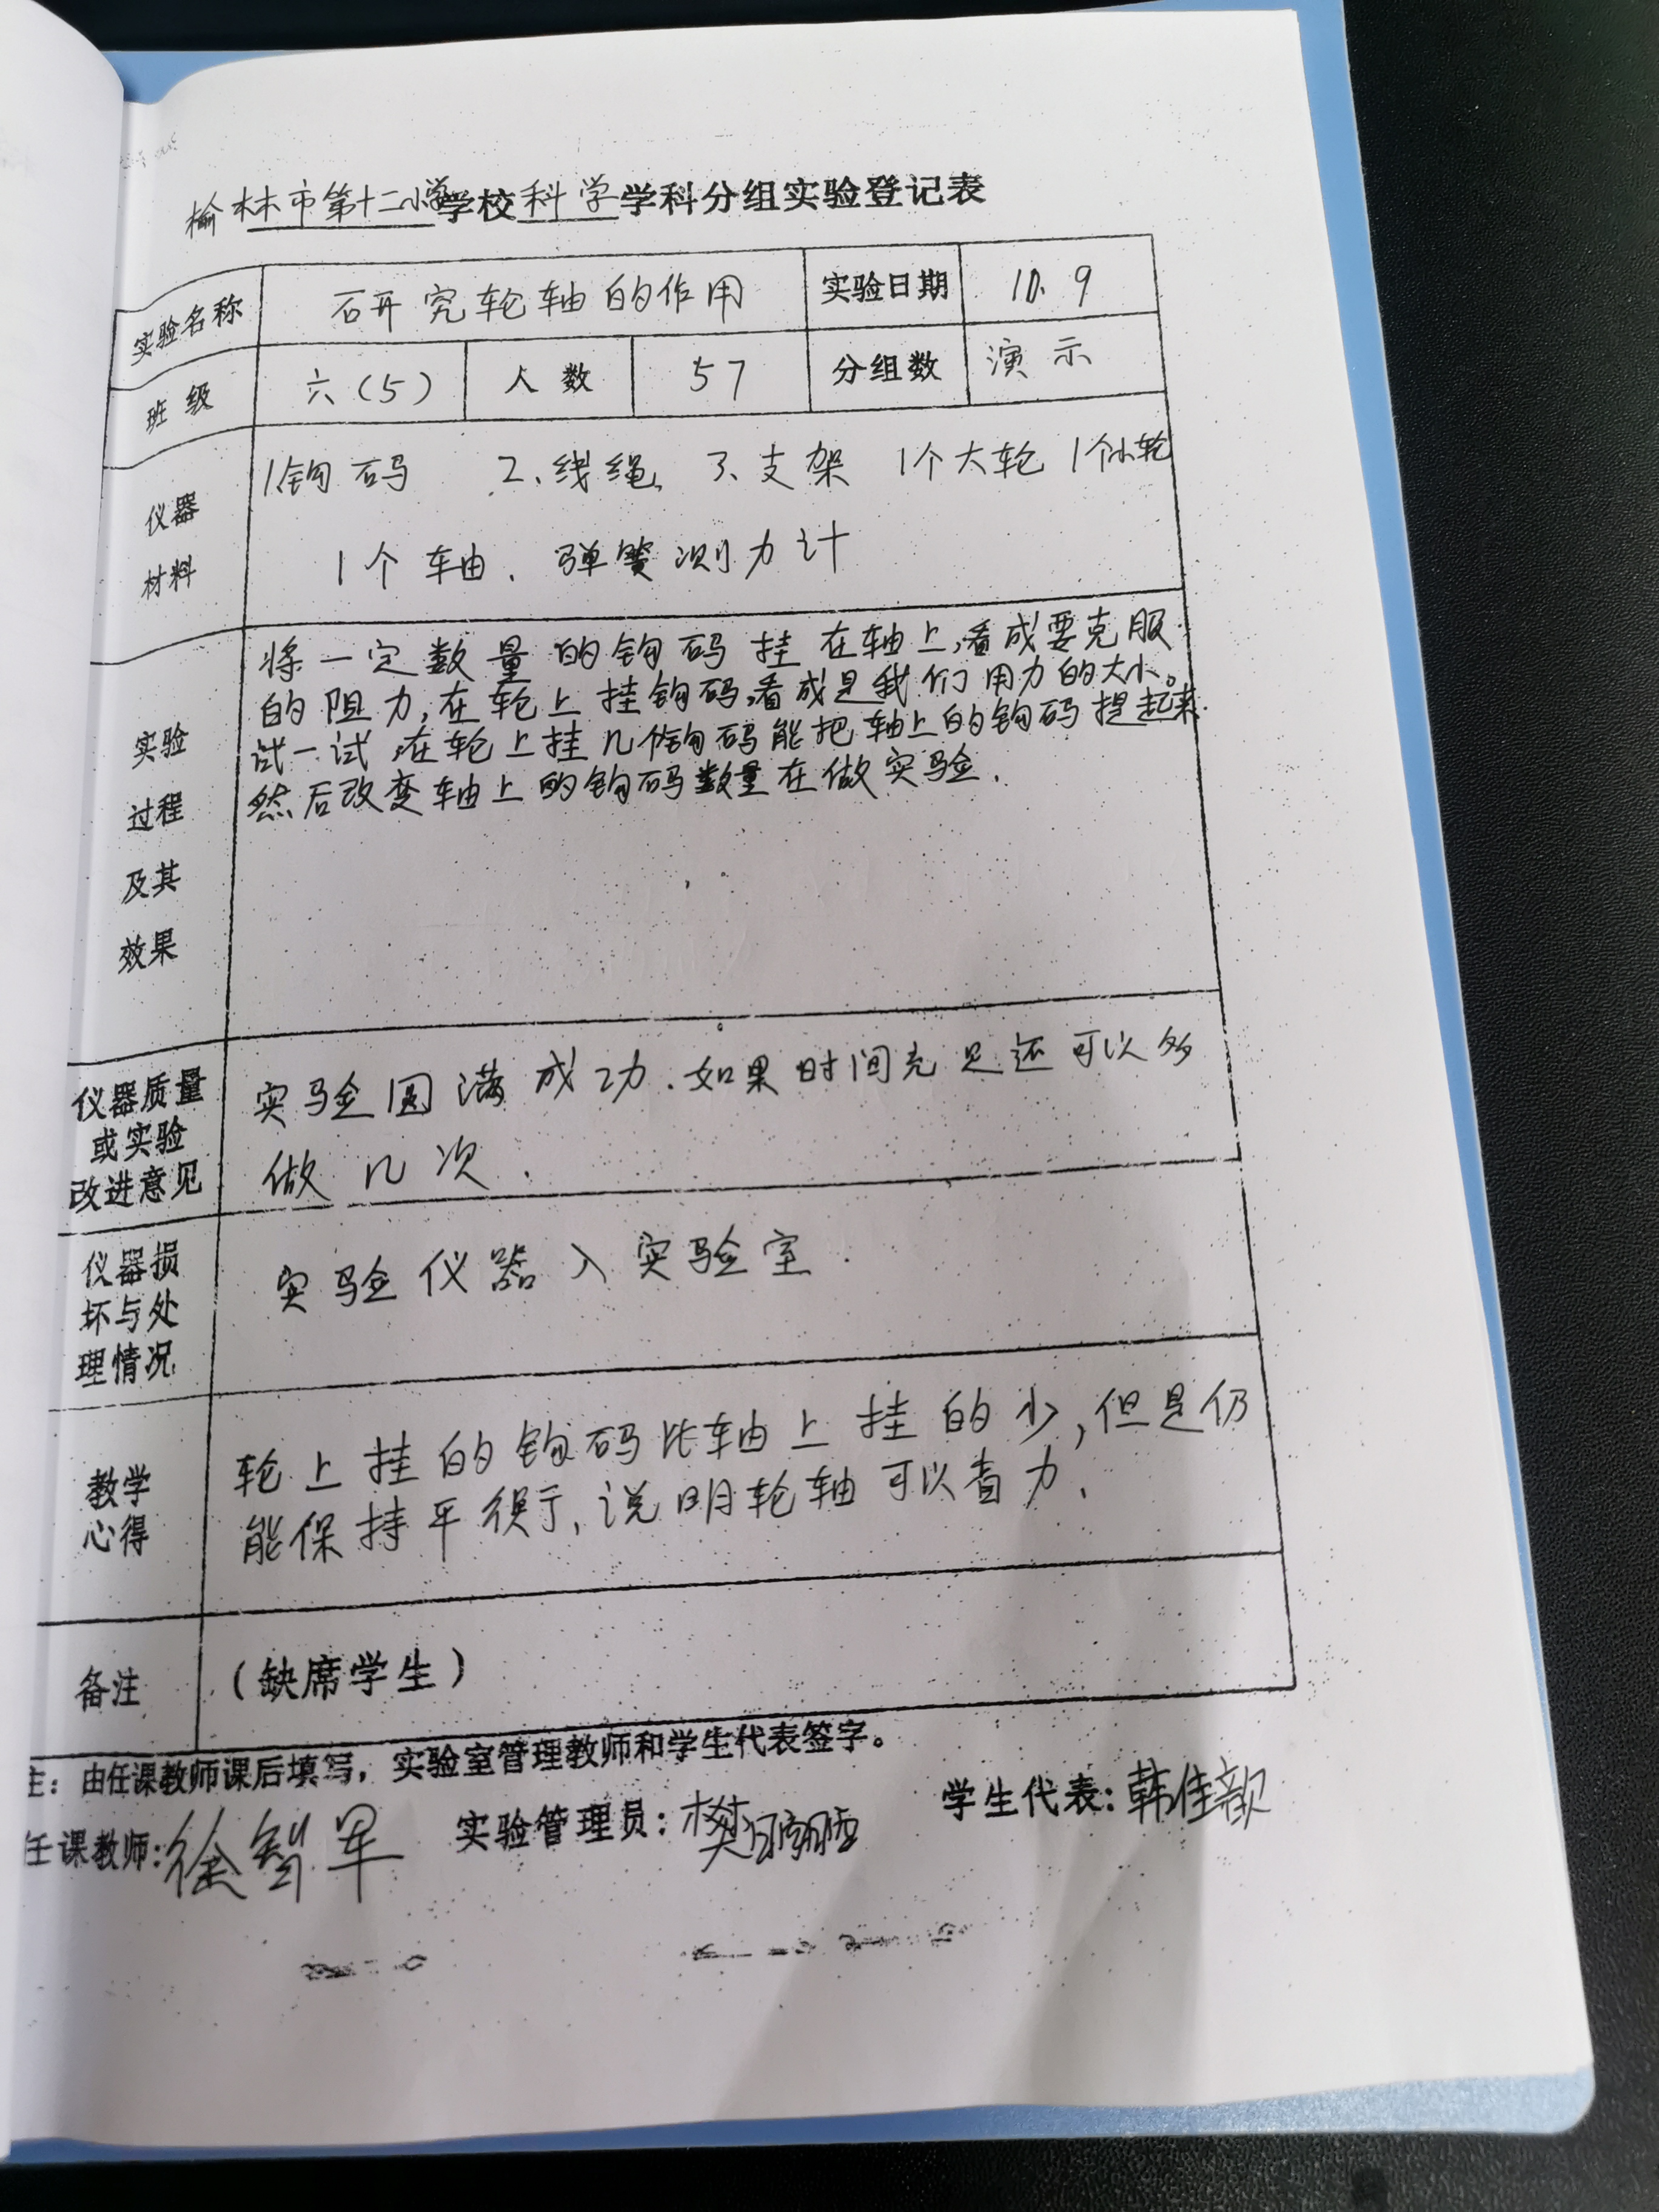 榆林市第十二小学学校科学学科分组实验登记表
实验名称 研究轮轴的作用 实验日期 10.9
班级 六(5) 人数 57 分组数 演示
仪器
材料
1.钩码 2、线绳、 3、支架 1个大轮 1个小轮
1个车由、弹簧测力计
实验
过程
及其
效果
将一定数量的钩码挂在轴上,看成要克服
的阻力,在轮上挂钩码,看成是我们用力的大小。
试一试,在轮上挂几个钩码能把轴上的钩码提起来.
然后改变轴上的钩码数量在做实验.
仪器质量
或实验
改进意见
实验圆满成功.如果时间充足还可以多
做几次.
仪器损
坏与处
理情况
实验仪器入实验室.
教学
心得
轮上挂的钩码比轴上挂的少,但是仍
能保持平衡,说明轮轴可以省力、
备注 (缺席学生)
主:由任课教师课后填写,实验室管理教师和学生代表签字。
任课教师:徐智军 实验管理员:樊 学生代表:韩佳歆